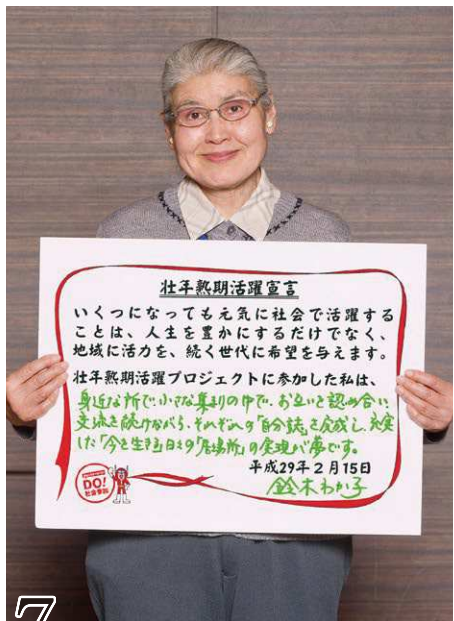 壮年熟期活躍宣言
いくつになっても元気に社会で活躍する
ことは、人生を豊かにするだけでなく、
地域に活力を、続く世代に希望を与えます。
壮年熟期活躍プロジェクトに参加した私は、
身近な所で、小さな集りの中で、お互いを認め合い、
交流を続けながら、それぞれの「自分誌」を完成し、充実
した「今を生きる」日々の「居場所」の実現が夢です。
平成29年2月15日
鈴木わか子
DO!
社会参加
7